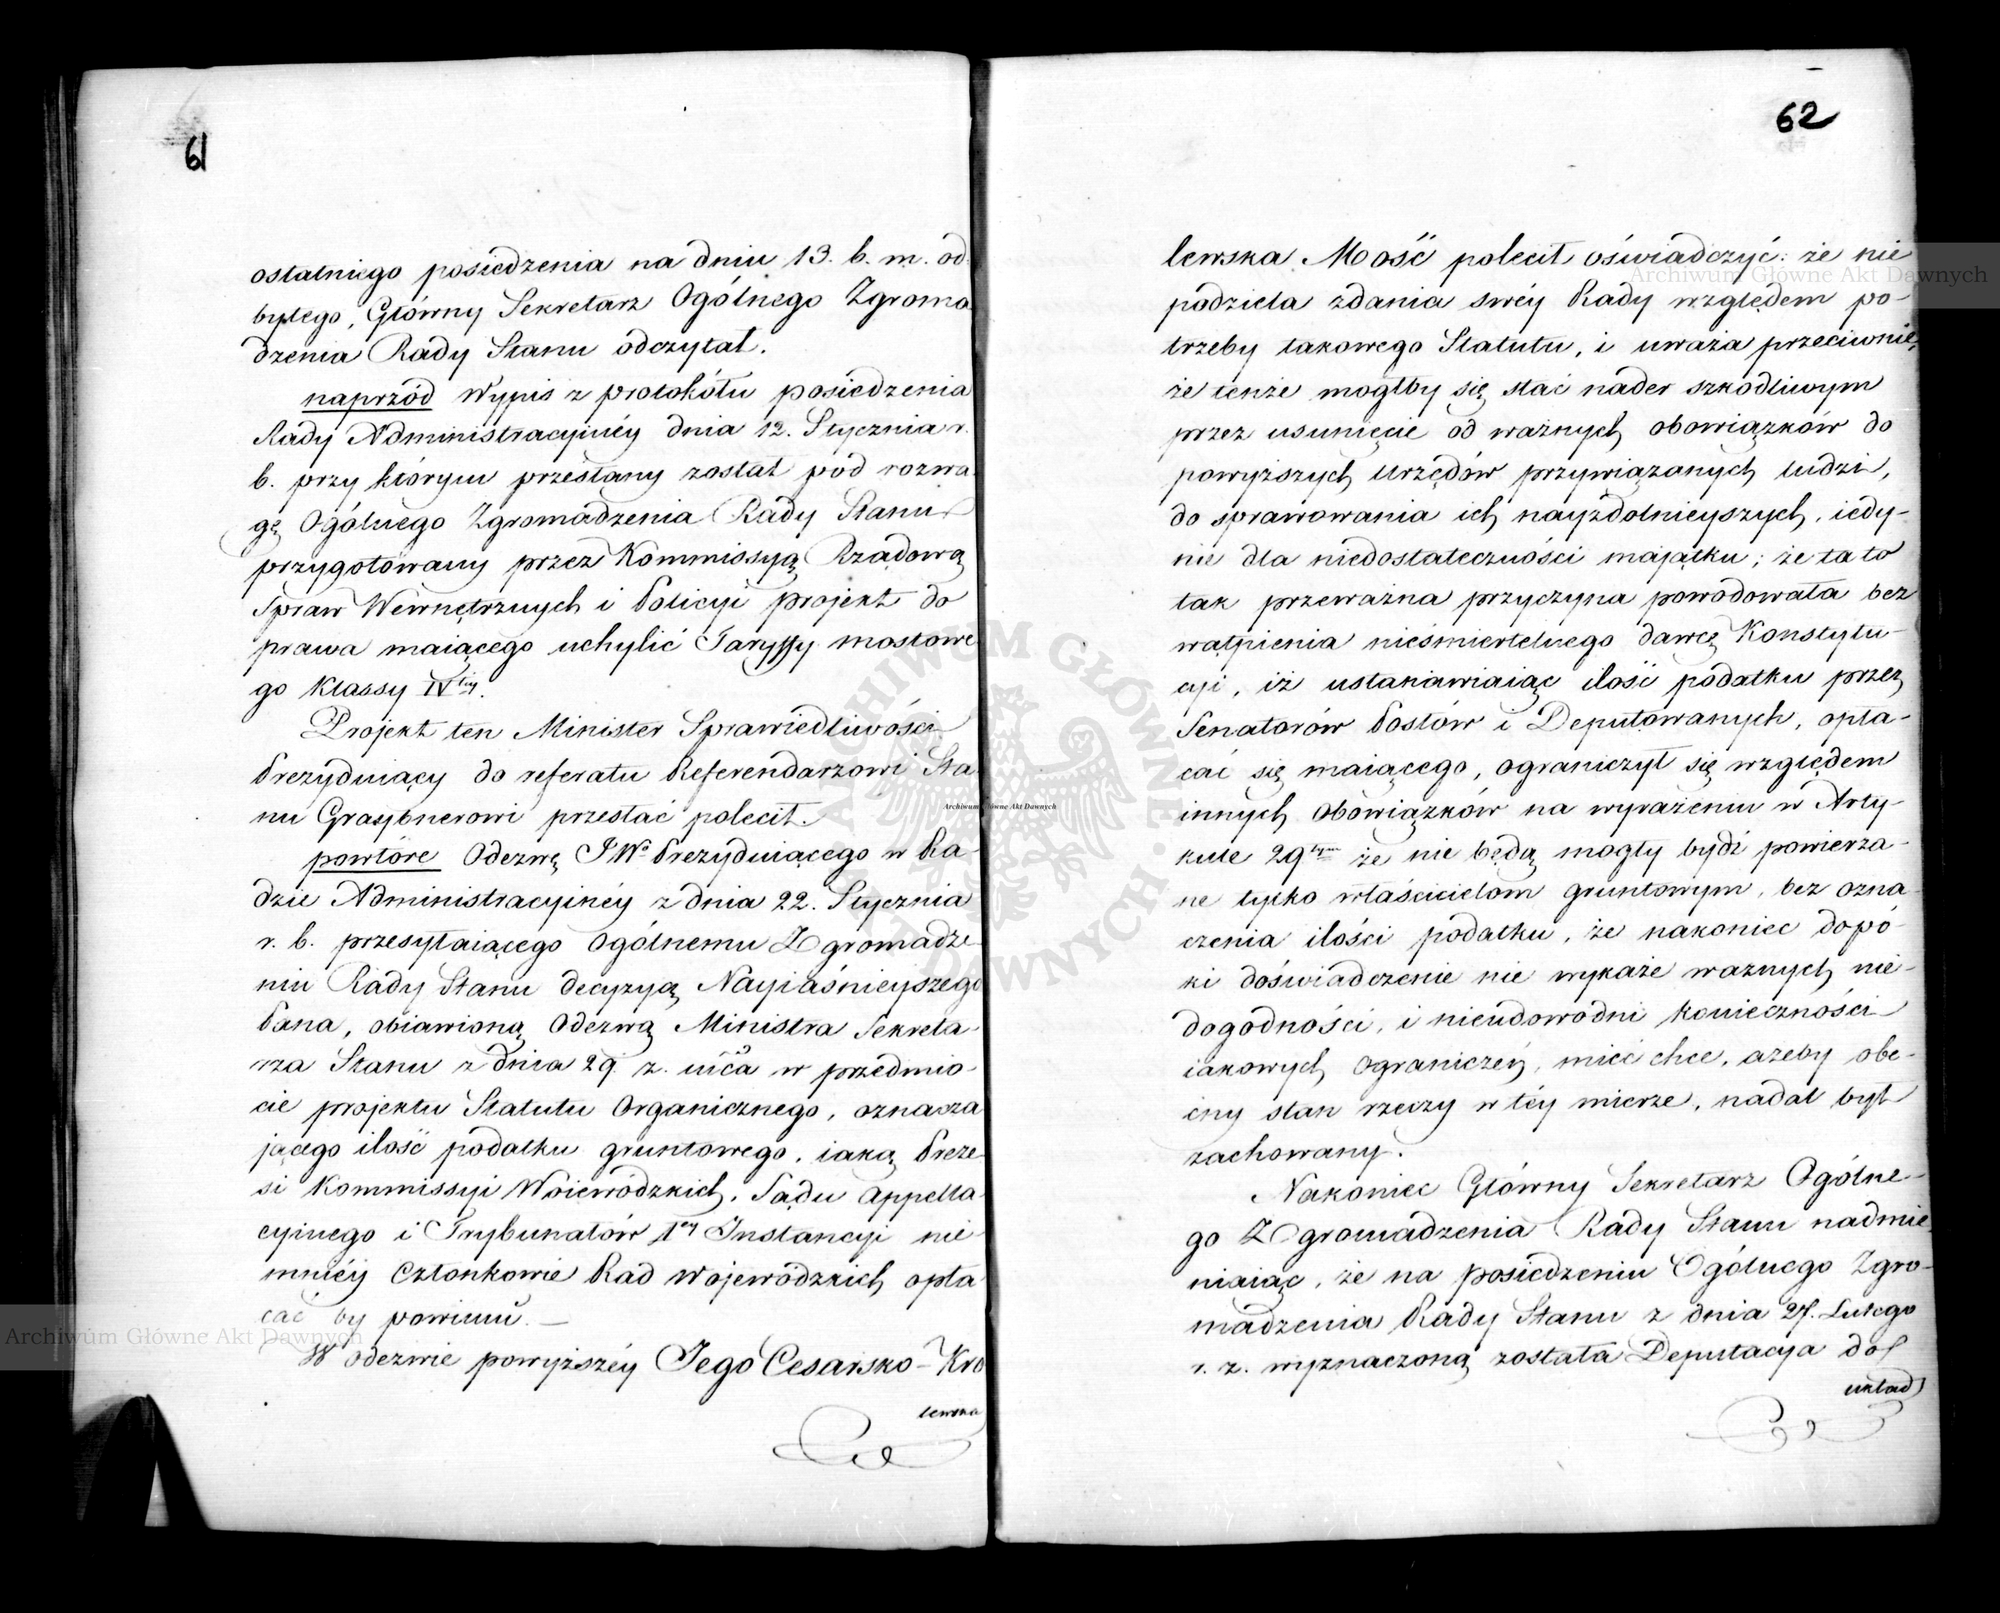 61
ostatniego posiedzenia na dniu 13. b. m. od-
bytego, Główny Sekretarz Ogólnego Zgroma
dzenia Rady Stanu odczytał.
naprzód Wypis z protokółu posiedzenia
Rady Administracyinéy dnia 12. Stycznia r.
b. przy którym przesłany został pod rozwa
gę Ogólnego Zgromadzenia Rady Stanu
przygotowany przez Kommissyą Rządową
Spraw Wewnętrznych i Policyi projekt do
prawa maiącego uchylić Taryffy mostowe
go Klassy IVtéy.
Projekt ten Minister Sprawiedliwości
Prezyduiący do referatu Referendarzowi Sta
nu Grasybnerowi przesłać polecił.
powtóre Odezwę JWo Prezyduiącego w Ra-
dzie Administracyinéy z dnia 22. Stycznia
r. b. przesyłaiącego Ogólnemu Zgromadze-
niu Rady Stanu decyzyą Nayiaśnieyszego
Pana, obiawioną Odezwą Ministra Sekreta-
rza Stanu z dnia 29. z. m̃ca w przedmio-
cie projektu Statutu Organicznego, oznacza
jącego ilość podatku gruntowego, iaką Preze
si Kommissyi Woiewódzkich, Sądu Appella-
cyinego i Trybunałów 1éy Instancyi nie-
mniéy Członkowie Rad Wojewódzkich opła
cać by powinni.
W odezwie powyższéy Jego Cesarsko-Kró
lewska
62
lewska Mość polecił oświadczyć: że nie
podziela zdania swéy Rady względem po-
trzeby takowego Statutu, i uważa przeciwnie,
że tenże mogłby się stać nader szkodliwym
przez usunięcie od ważnych obowiązków do
powyższych Urzędów przywiązanych ludzi,
do sprawowania ich nayzdolnieyszych, iedy-
nie dla niedostateczności majątku; że ta to
tak przeważna przyczyna powodowała bez
wątpienia nieśmiertelnego dawcę Konstytu-
cyi, iż ustanawiaiąc ilość podatku przez
Senatorów Posłów i Deputowanych, opła-
cać się maiącego, ograniczył się względem
innych Obowiązków na wyrażeniu w Arty-
kule 29tym że nie będą mogły bydź powierza-
ne tylko właścicielom gruntowym, bez ozna-
czenia ilości podatku, że nakoniec dopó-
ki doświadczenie nie wykaże ważnych nie-
dogodności, i nieudowodni konieczności
iakowych Ograniczeń, mieć chce, ażeby obe-
cny stan rzeczy w téy mierze, nadal był
zachowany.
Nakoniec Główny Sekretarz Ogólne-
go Zgromadzenia Rady Stanu nadmie
niaiąc, że na posiedzeniu Ogólnego Zgro-
madzenia Rady Stanu z dnia 27. Lutego
r. z. wyznaczoną została Deputacya do
układ
Archiwum Główne Akt Dawnych
Archiwum Główne Akt Dawnych
Archiwum Główne Akt Dawnych
ARCHIWUM GŁÓWNE AKT DAWNYCH